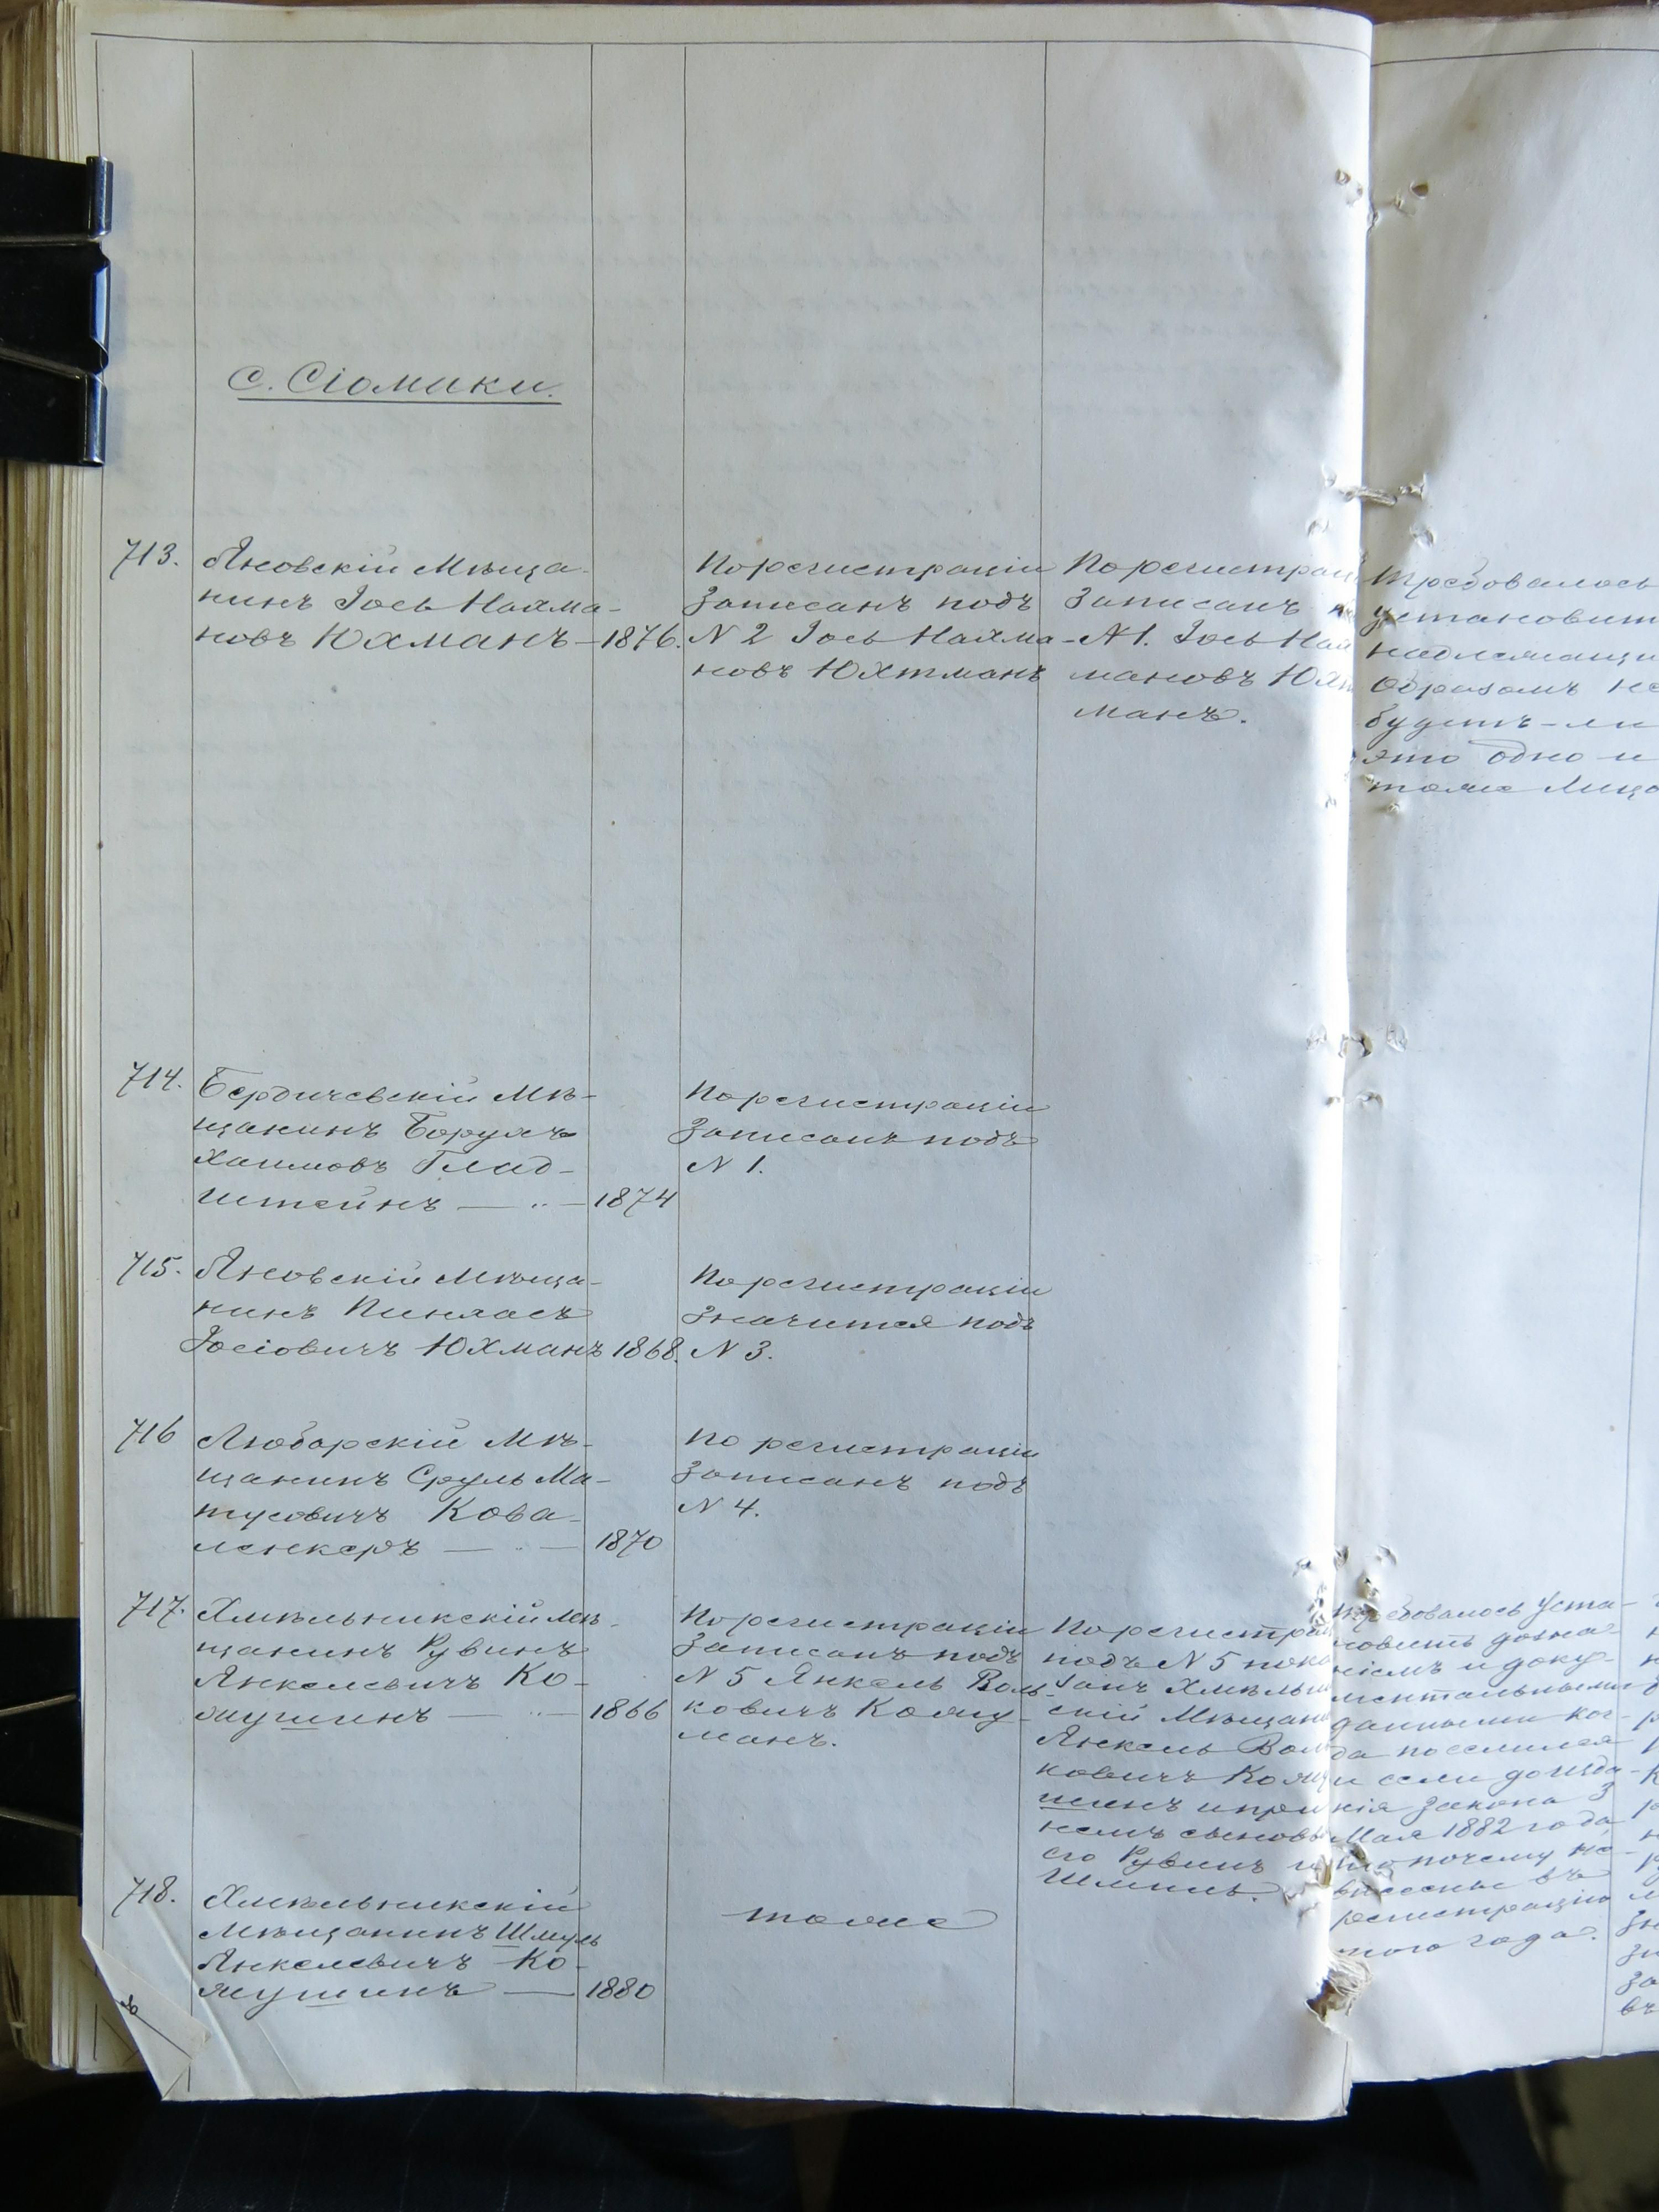 с. Сіомики.
713.
Яновскій Мѣща-
нинъ Іось Нахма-
новъ Юхманъ – 1876.
По регистраціи
записанъ подъ
N 2 Іось Нахма-
новъ Юхтманъ
По регистраці
записанъ
N 1. Іось Нах
мановъ Юхт
манъ.
Требовалось
установит
надлежащи
образомъ не
будетъ-ли
это одно и
тоже лицо
714.
Бердичевскій Мѣ-
щанинъ Борухъ
Хаимовъ Глад-
штейнъ — 1874
По регистраціи
записанъ подъ
N 1.
715.
Яновскій Мѣща-
нинъ Пинхасъ
Іосіовичъ Юхманъ 1868.
По регистраціи
значится подъ
N 3.
716
Любарскій Мѣ-
щанинъ Сруль Ма-
тусовичъ Кова-
ленкеръ — 1870
По регистраціи
записанъ подъ
N 4.
717.
Хмѣльникскій Мѣ-
щанинъ Рувинъ
Янкелевичъ Ко-
жушинъ — 1866
По регистраціи
записанъ подъ
N 5 Янкель Воль-
ковичъ Кожу-
манъ.
По регистра
подъ N 5 пока
занъ Хмѣльни
скій Мѣщани
Янкель Вол
ковичъ Кожу
шинъ и при
немъ сыновь
его Рувинъ и
Шмиль.
Требовалось уста-
новить дозна-
ніемъ и доку-
ментальными
данными ког-
да поселился
и если до изда-
нія закона 3
Мая 1882 года
то почему не
внесены въ
регистрацію
того года.
718.
Хмѣльникскій
Мѣщанинъ Шмуль
Янкелевичъ Ко-
жушинъ — 1880
тоже